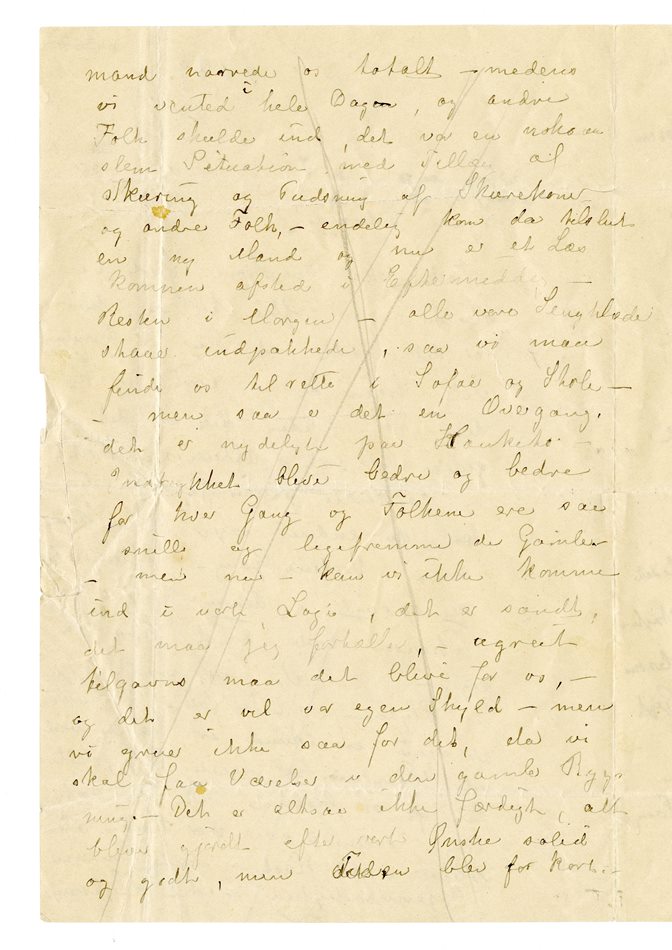 mand narrede os totalt – medens
vi vented i hele Dagen, og andre
Folk skulde ind, det var en noksaa
slem Situation, med Tillæg af
Skuring og Pudsning af Skurekone
og andre Folk, – endelig kom da tilslut
en ny Mand og nu er et Læs
kommen afsted i Eftermiddag –
Resten i Morgen – alle vore
skaar indpakkede, saa vi maa
finde os tilrette i Sofae og Stole –
– men saa er det en Overgang.
det er nydeligt paa Hauketo –
Indtrykket blive bedre og bedre
for hver Gang og Folkene ere saa
snille og ligefremme de Gamle
– men nu – kan vi ikke komme
ind i vort Logi, det er sandt,
det maa jeg fortælle, – ugreit
tilgavns maa det blive for os, –
og det er vel vor egen Skyld – men
vi gruer ikke saa for det, da vi
skal faa Værelser i den gamle Byg-
ning. – Det er altsaa ikke færdigt, alt
bliver gjordt efter vort Ønske solid
og godt, men Tiden blev for kort. –